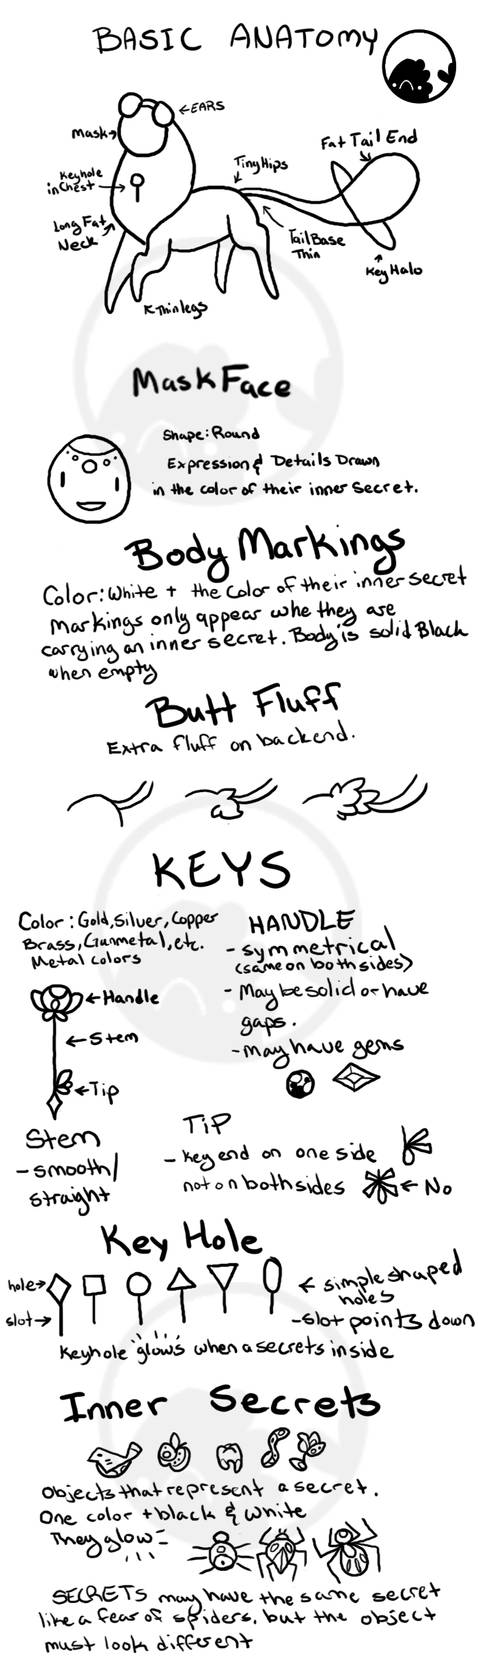 BASIC ANATOMY
EARS
Mask
Keyhole
in Chest
Long Fat
Neck
Thin legs
Tiny Hips
Fat Tail End
Tail Base
Thin
Key Halo
Mask Face
Shape: Round
Expression & Details Drawn
in the color of their inner Secret.
Body Markings
Color: White + the color of their inner secret
Markings only appear whe they are
carrying an inner secret. Body is solid Black
when empty
Butt Fluff
Extra fluff on backend.
KEYS
Color: Gold, Silver, Copper
Brass, Gunmetal, etc.
Metal colors
Handle
Stem
Tip
HANDLE
- symmetrical
(same on both sides)
- May be solid or have
gaps.
- may have gems
Stem
- smooth/
straight
Tip
- Key end on one side
not on both sides
No
Key Hole
hole
slot
simple shaped
holes
- slot points down
Keyhole glows when a secrets inside
Inner Secrets
Objects that represent a secret.
One color + black & white
They glow
SECRETS may have the same secret
like a fear of spiders, but the object
must look different